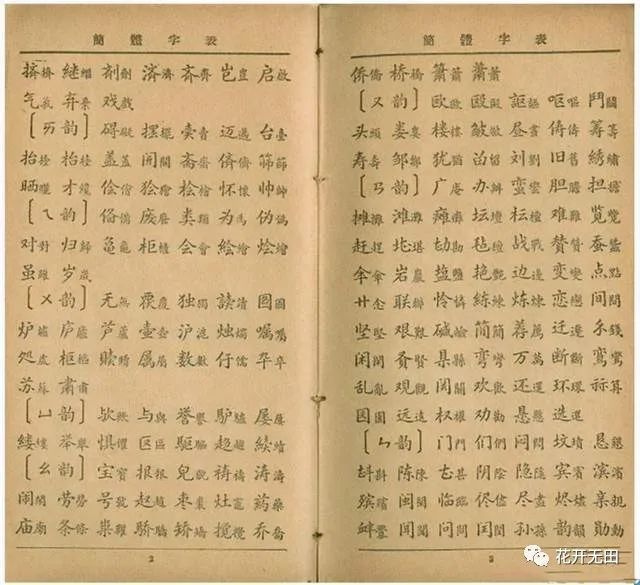 簡體字表
挤擠 継繼 剤劑 済濟 斉齊 岂豈 启啟
气氣 弃棄 戏戲
〔ㄞ韵〕 碍礙 摆擺 卖賣 迈邁 台臺
抬擡 枱檯 盖蓋 斋齋 侪儕 筛篩
晒曬 才纔 侩儈 狯獪 桧檜 怀懷 帅帥
〔ㄟ韵〕 俻備 废廢 类類 为爲 伪僞
对對 归歸 亀龜 柜櫃 会會 絵繪 烩燴
虽雖 岁歲
〔ㄨ韵〕 无無 独獨 読讀 図圖
炉爐 庐廬 芦蘆 壶壺 沪滬 烛燭 嘱囑
処處 枢樞 赎贖 属屬 数數 卆卒
苏蘇 肃肅
〔ㄩ韵〕 欤歟 与與 誉譽 驴驢 屡屢
缕縷 举舉 惧懼 区區 駆驅 趋趨 続續
〔ㄠ韵〕 宝寶 报報 祷禱 涛濤
闹鬧 劳勞 号號 赵趙 枣棗 灶竈 药藥
庙廟 条條 骄驕 矫矯 搅攪 乔喬
2
簡體字表
侨僑 桥橋 箫簫 萧蕭
〔ㄡ韵〕 欧歐 殴毆 讴謳 呕嘔 鬥鬭
头頭 娄婁 楼樓 昼晝 俦儔 筹籌
寿壽 邹鄒 犹猶 刘劉 旧舊 绣繡
〔ㄢ韵〕 广庵 办辦 蛮蠻 胆膽 担擔
摊攤 滩灘 瘫癱 坛壇 枟檀 难難 览覽
赶趕 劝勘 毡氈 战戰 赞贊 蚕蠶
伞傘 岩巖 盐鹽 艳艷 边邊 变變 点點
廿念 联聯 怜憐 練練 炼煉 恋戀 间閒
坚堅 艰艱 碱鹼 简簡 荐薦 迁遷 钱錢
闲閑 贤賢 県縣 弯彎 万萬 断斷 鸾鸞 祘算
乱亂 观觀 関關 欢歡 还還 环環
园園 远遠 权權 劝勸 悬懸 选選
〔ㄣ韵〕 门門 们們 问悶 坟墳 恳懇
斟斟 陈陳 阴陰 隐隱 宾賓 滨濱
殡殯 闽閩 临臨 侭儘 尽盡 烬燼 亲親
衅釁 闻聞 问問 闰閏 孙孫 韵韻 勋勳
3
花开无田